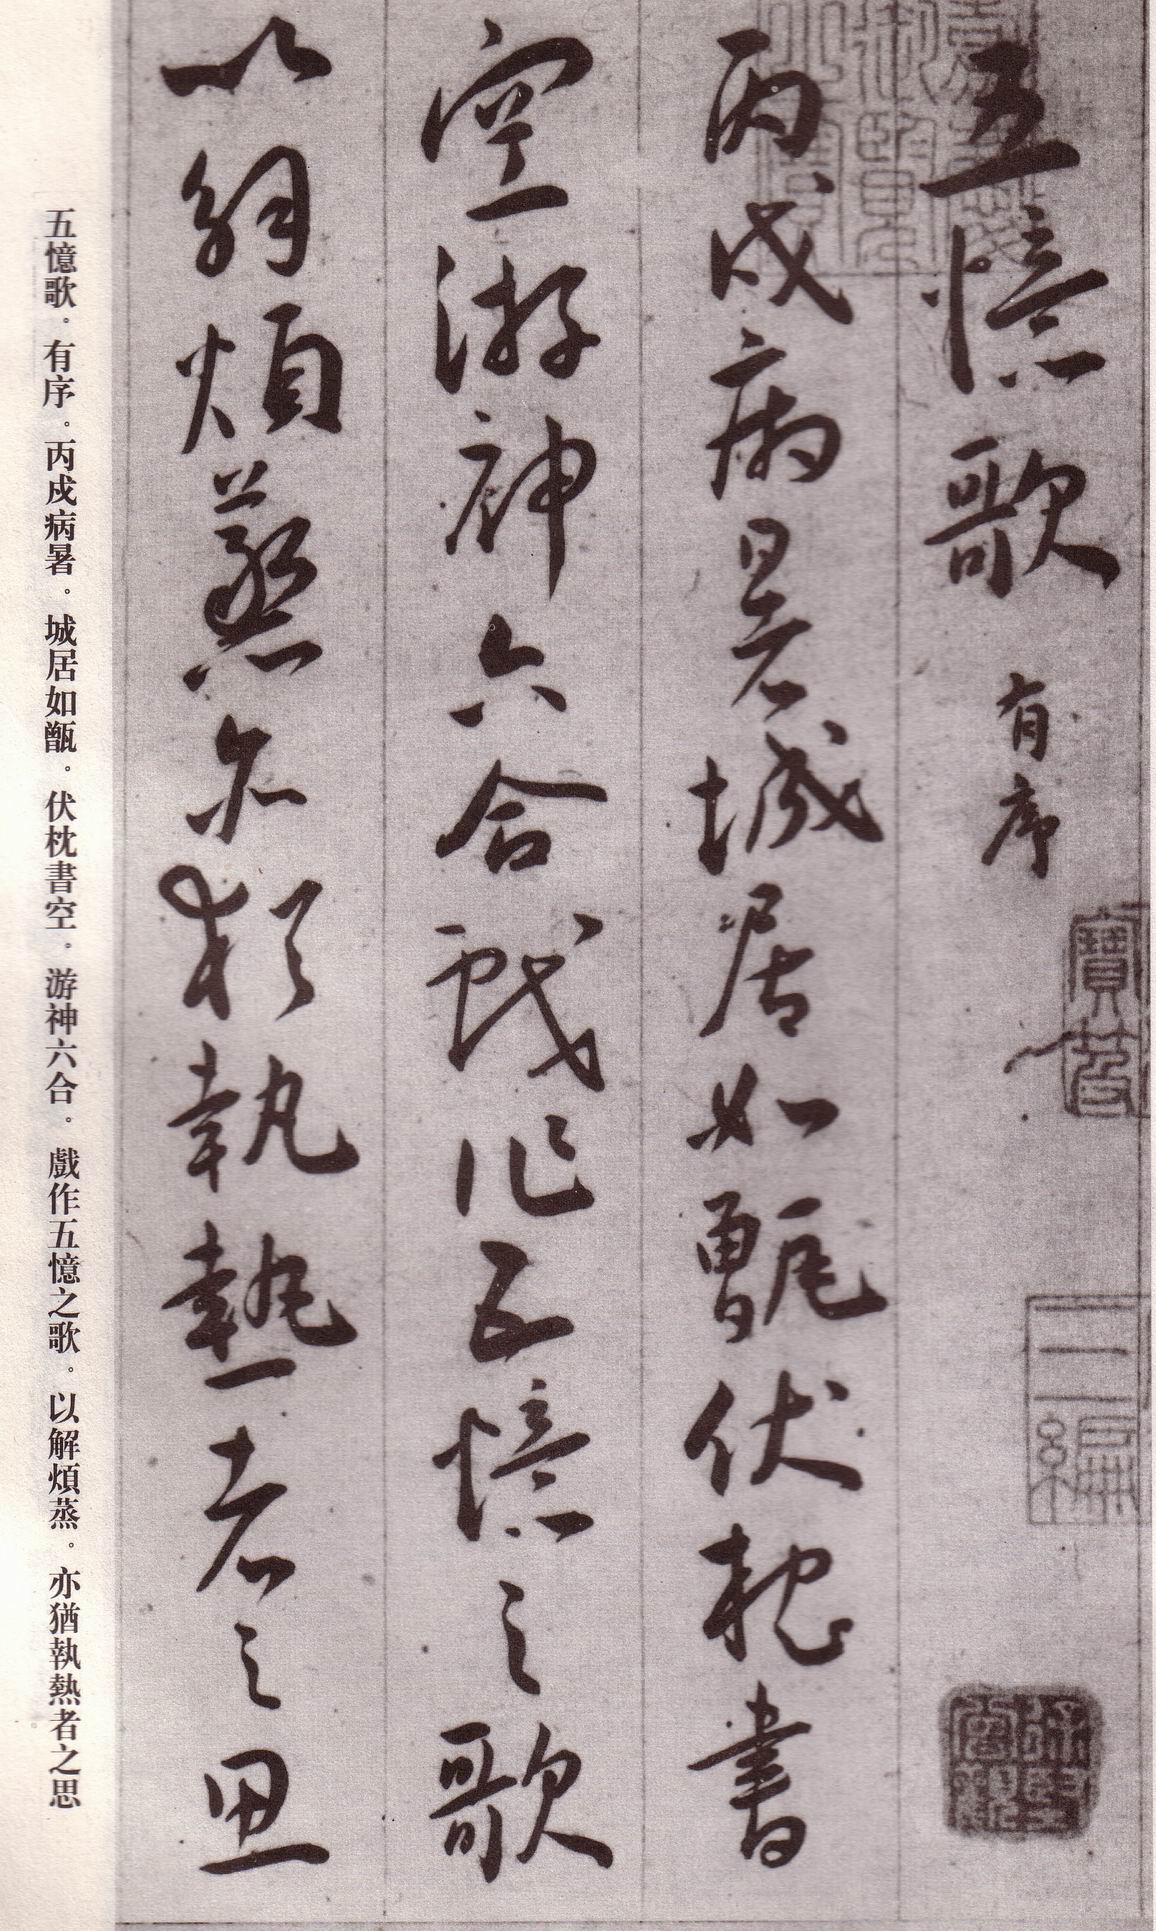 五憶歌 有序
丙戌病暑城居如甑伏枕書
空游神六合戲作五憶之歌
以解煩蒸亦猶執熱者之思
寶笈
三編
五憶歌。有序。丙戌病暑。城居如甑。伏枕書空。游神六合。戲作五憶之歌。以解煩蒸。亦猶執熱者之思